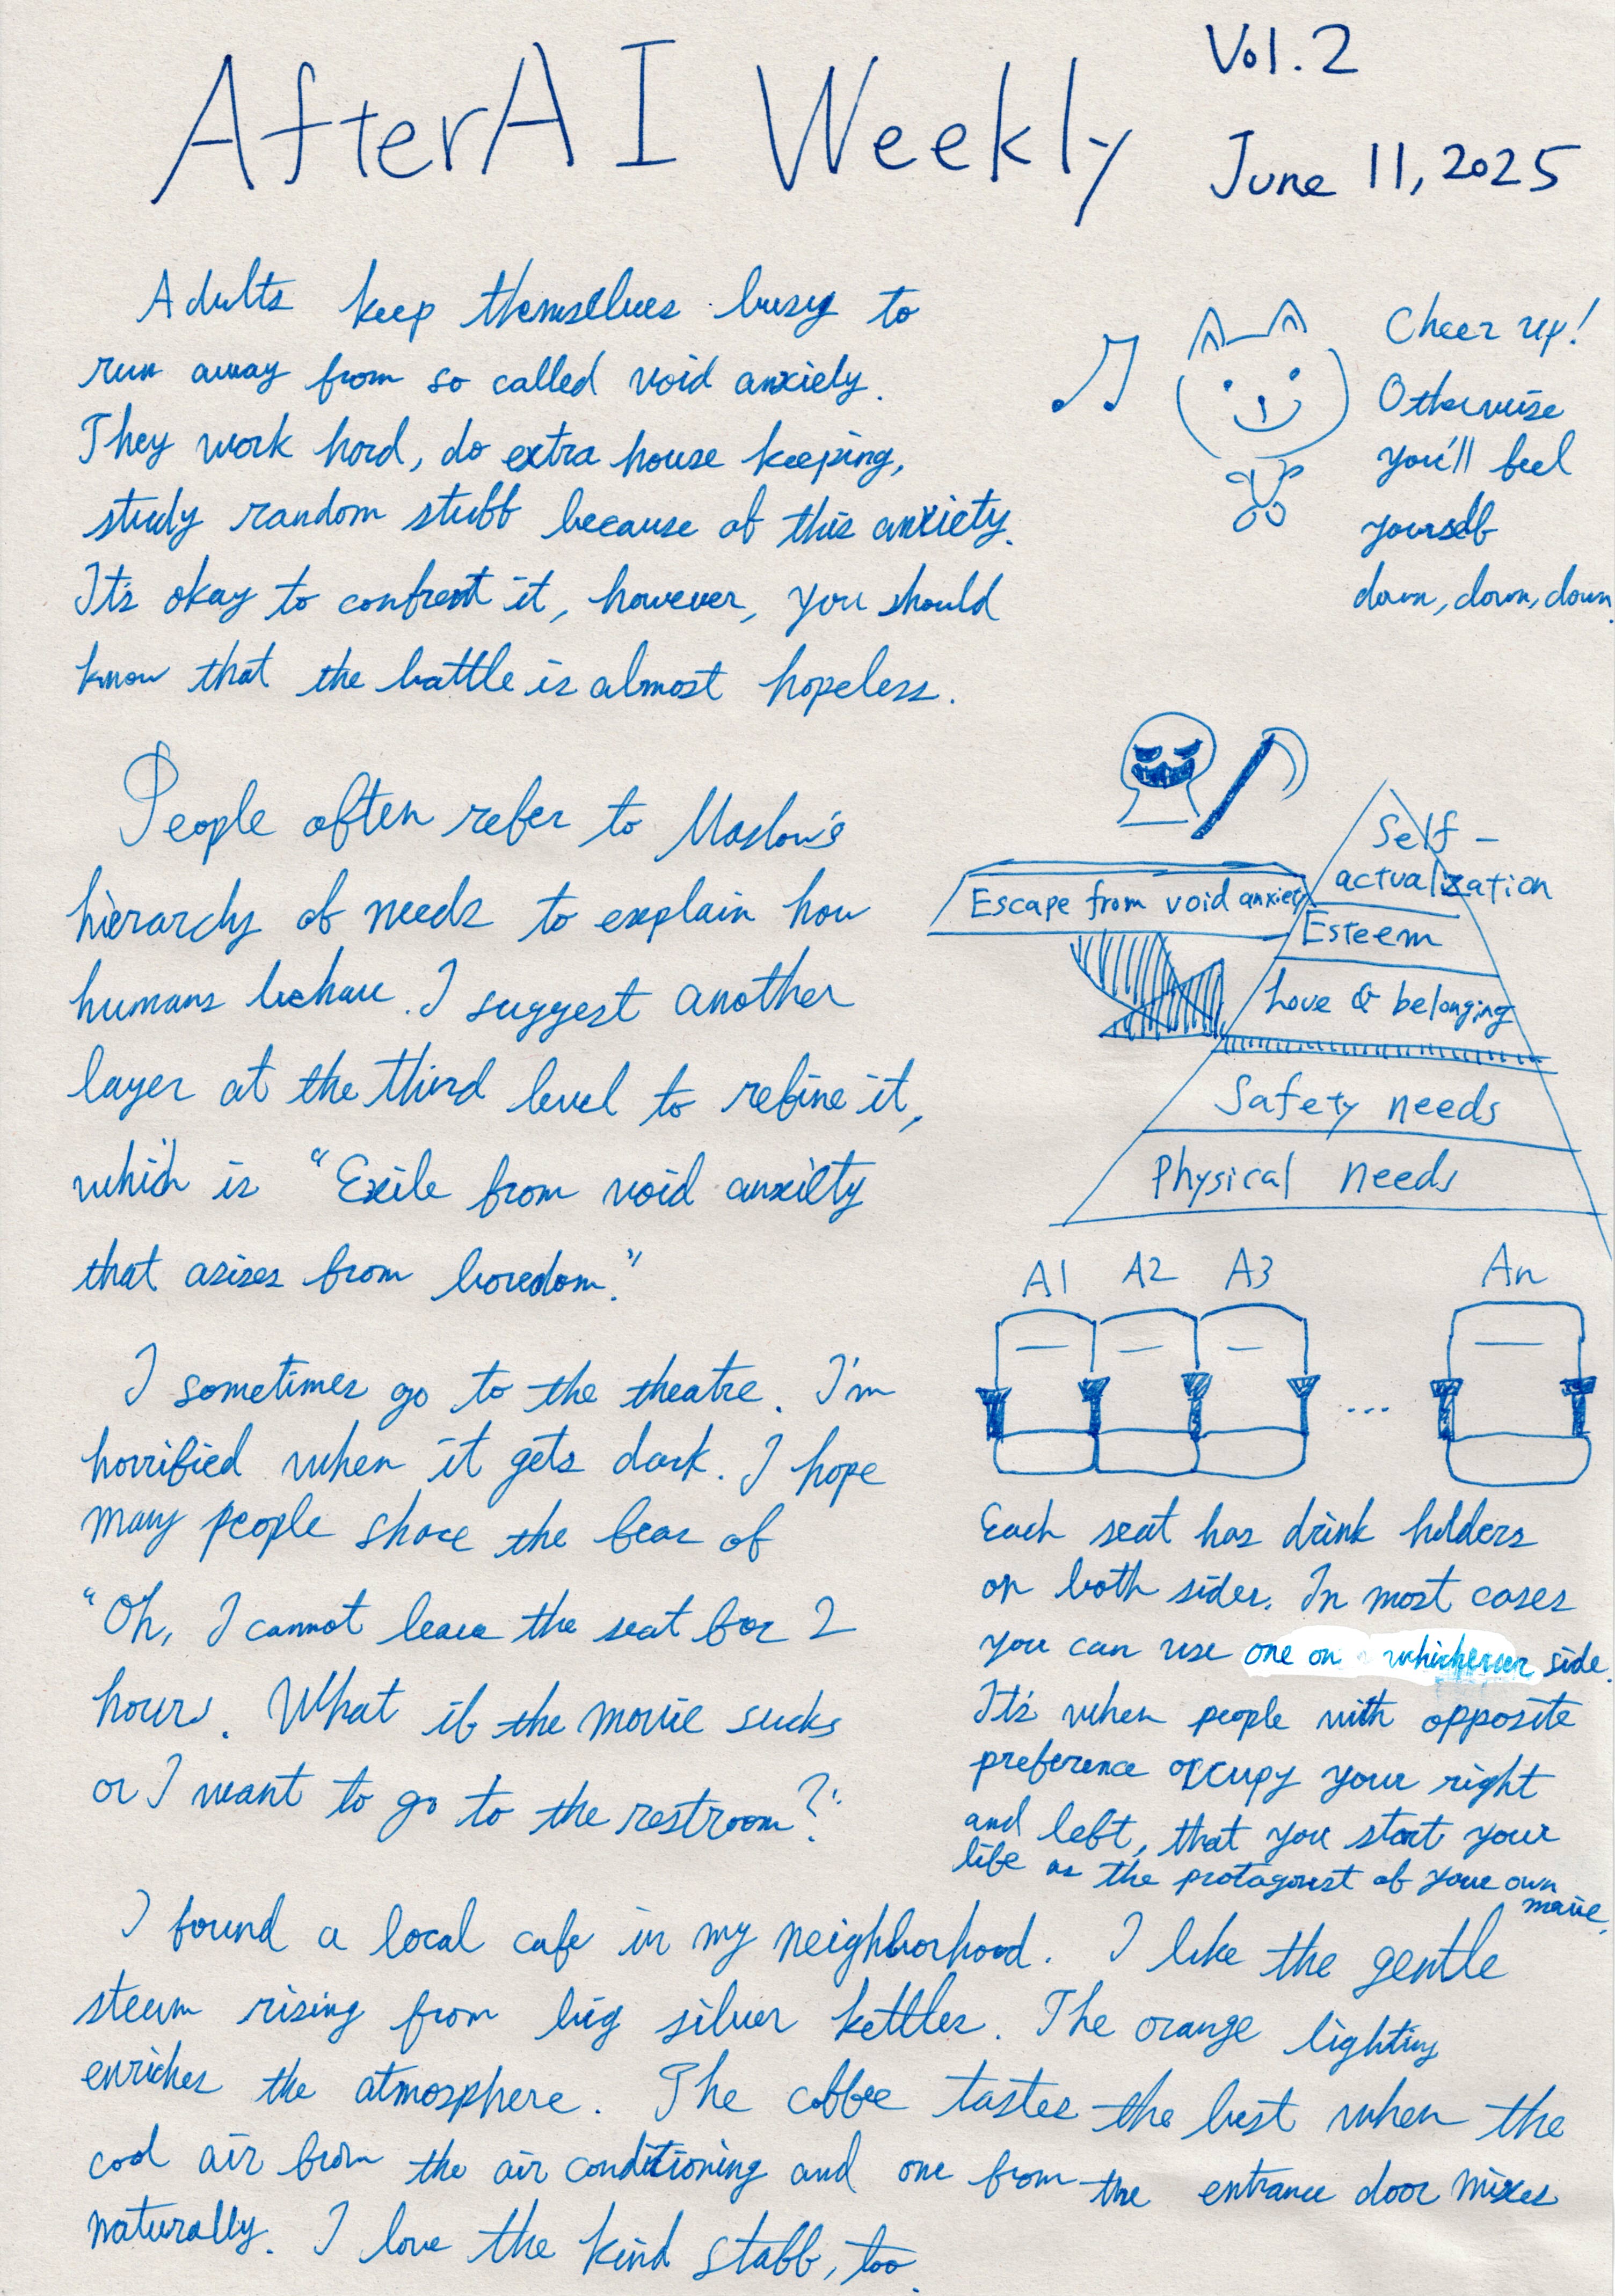 AfterAI Weekly
Vol. 2
June 11, 2025
Adults keep themselves busy to
run away from so called void anxiety.
They work hard, do extra house keeping,
study random stuff because of this anxiety.
It's okay to confront it, however, you should
know that the battle is almost hopeless.
Cheer up!
Otherwise
you'll feel
yourself
down, down, down.
People often refer to Maslow's
hierarchy of needs to explain how
humans behave. I suggest another
layer at the third level to refine it,
which is "Exile from void anxiety
that arises from boredom."
Self-
actualization
Escape from void anxiety
Esteem
Love & belonging
Safety needs
Physical needs
I sometimes go to the theatre. I'm
horrified when it gets dark. I hope
many people share the fear of
"Oh, I cannot leave the seat for 2
hours. What if the movie sucks
or I want to go to the restroom?"
A1 A2 A3 An
...
Each seat has drink holders
on both sides. In most cases
you can use one on whichever side.
It's when people with opposite
preference occupy your right
and left, that you start your
life as the protagonist of your own
movie.
I found a local cafe in my neighborhood. I like the gentle
steam rising from big silver kettles. The orange lighting
enriches the atmosphere. The coffee tastes the best when the
cool air from the air conditioning and one from the entrance door mixes
naturally. I love the kind staff, too.